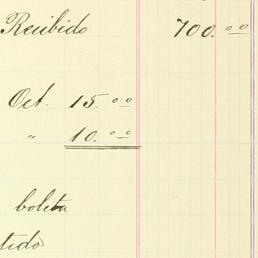 Recibido 700.00
Oct. 15.00
" 10.00
boleta
tido